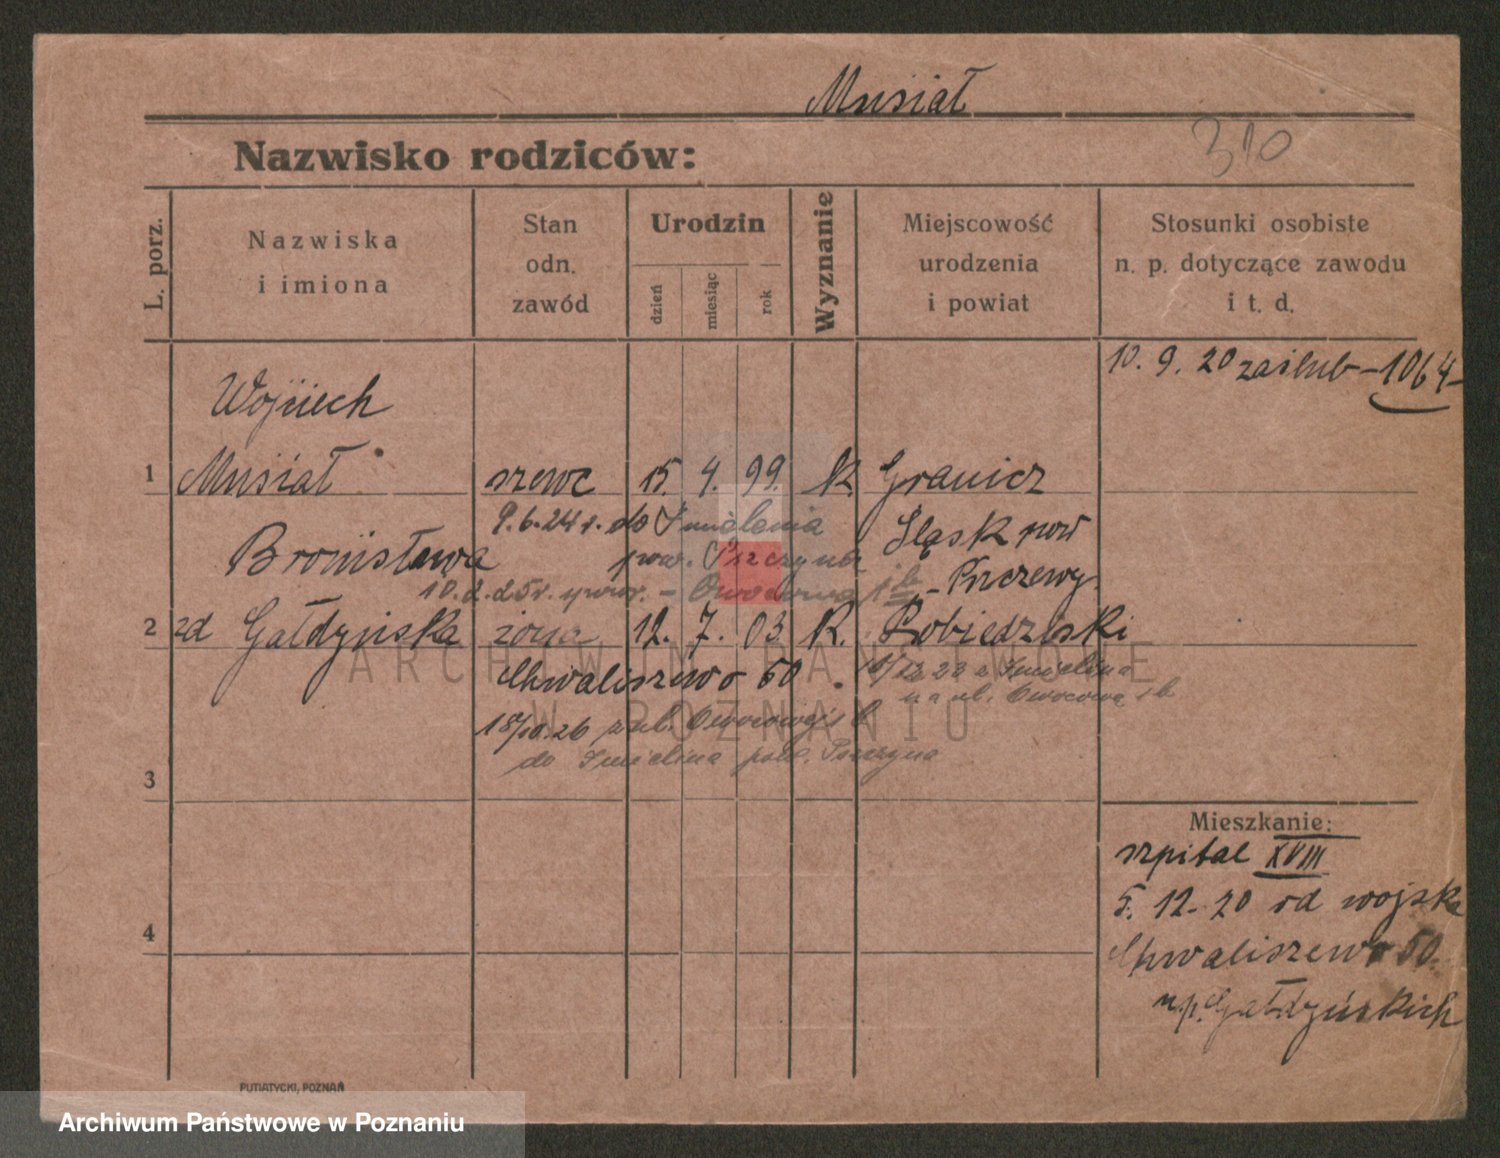 Musiał
310
Nazwisko rodziców:
L. porz.
Nazwiska
i imiona
Stan
odn.
zawód
Urodzin
dzień
miesiąc
rok
Wyznanie
Miejscowość
urodzenia
i powiat
Stosunki osobiste
n. p. dotyczące zawodu
i t. d.
10. 9. 20 zaślub - 1064 -
Wojciech
1 Musiał szewc 15. 4. 99. K. Granicz
9.6.24 r. do Imielenia
Śląsk pow
Bronisława
pow. Pszczyna
- Pszczewy.
10.2.25 r. pow. -
2 zd Gałdyńska żona 12. 7. 03 K. Pobiedziski
Chwaliszewo 60
10/12 23 z Imielina
na ul. Owocową 1 b
18/10.26 z ul. Owocowej 1 b
do Imielina pow. Pszczyna
3
4
Mieszkanie:
szpital XVIII
5. 12. 20 od wojska
Chwaliszewo 60.
u.p. Gałdyńskich
ARCHIWUM PAŃSTWOWE
W POZNANIU
PUTIATYCKI, POZNAŃ
Archiwum Państwowe w Poznaniu